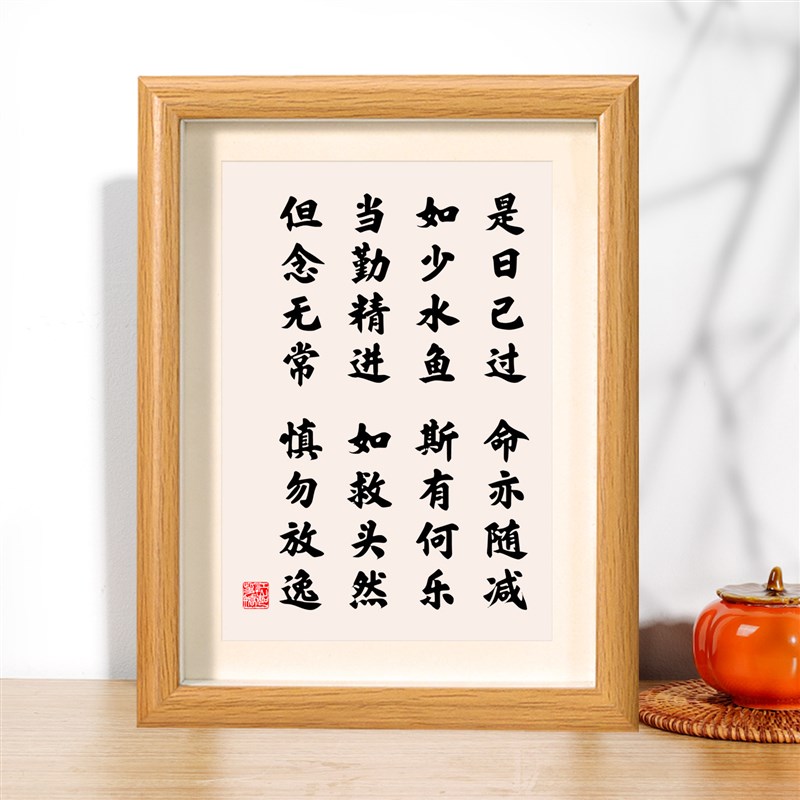 是日已过 命亦随减
如少水鱼 斯有何乐
当勤精进 如救头然
但念无常 慎勿放逸